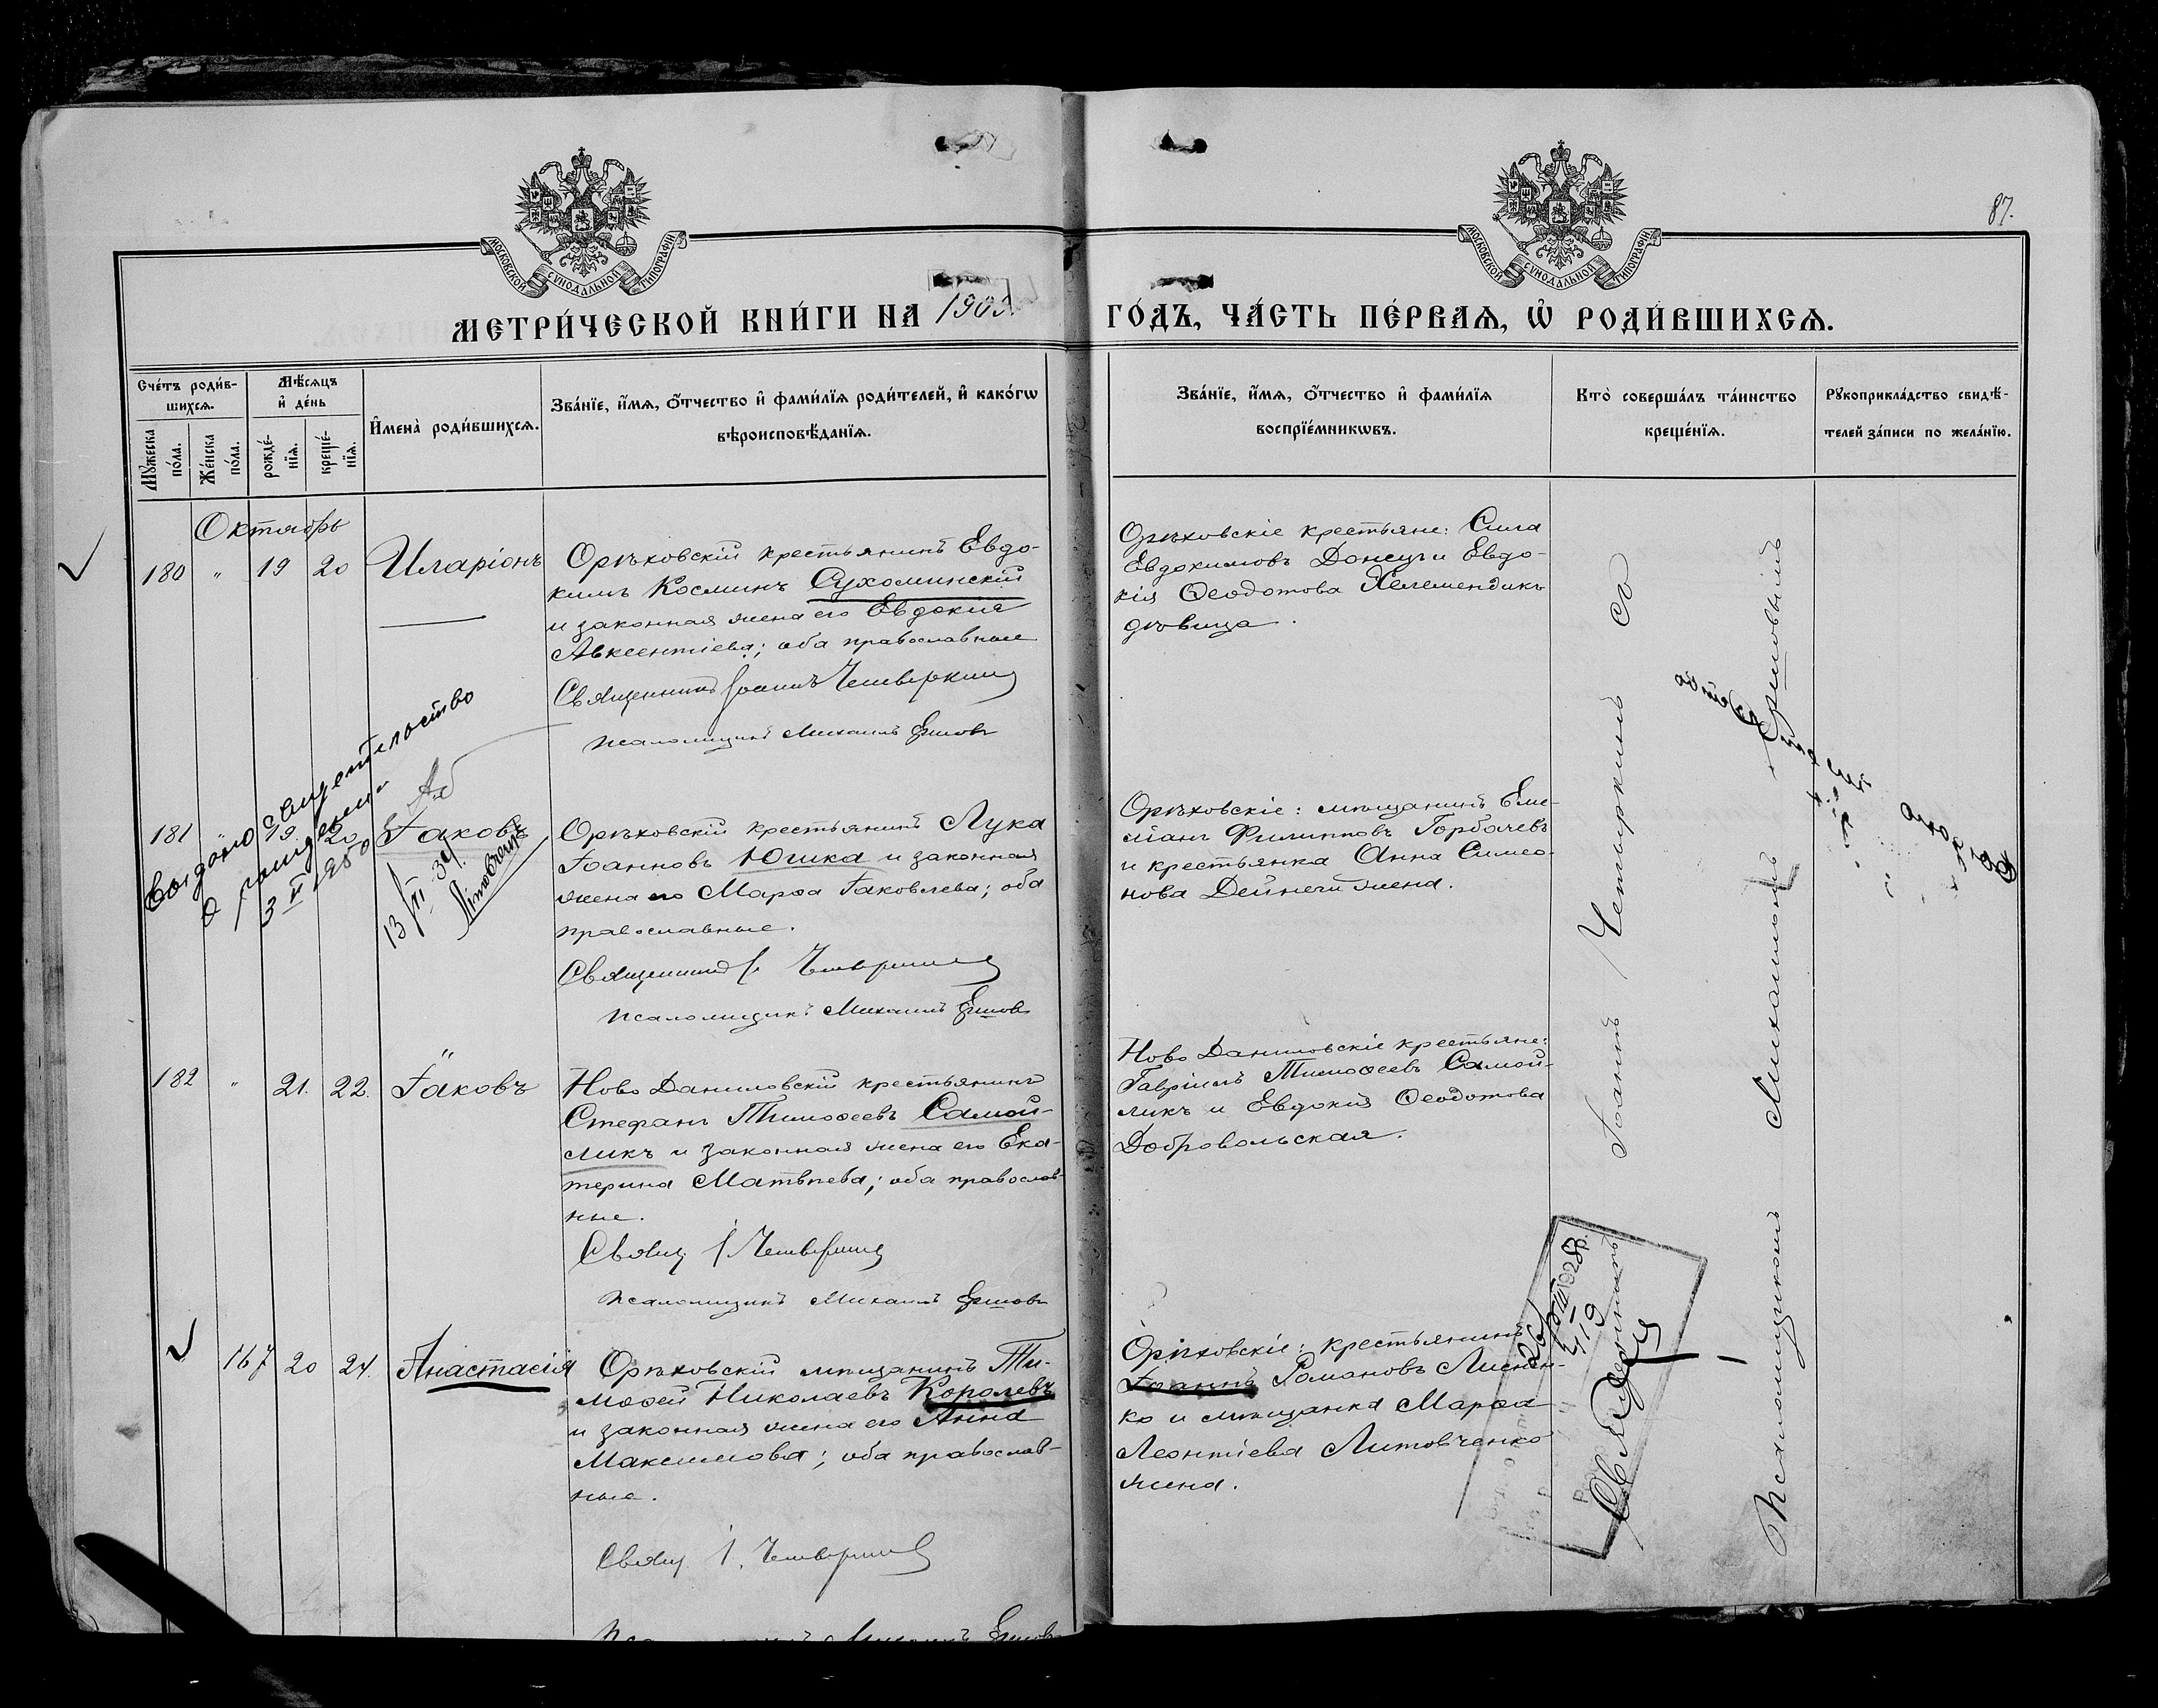 87.
МОСКОВСКОЙ СУНОДАЛЬНОЙ ТИПОГРАФІИ
МОСКОВСКОЙ СУНОДАЛЬНОЙ ТИПОГРАФІИ
МЕТРИ́ЧЕСКОЙ КНИ́ГИ НА 1905.
ГО́ДЪ, ЧА́СТЬ ПЕ́РВАѦ, Ѡ҆ РОДИ́ВШИХСѦ.
Сче́тъ роди́в-
шихсѧ.
Мѣ́сѧцъ
и҆ де́нь
Мꙋ́жеска
по́ла.
Же́нска
по́ла.
рожде́-
нїѧ.
креще́-
нїѧ.
И҆мена̀ роди́вшихсѧ.
Зва́нїе, и҆́мѧ, ѻ҆́тчество и҆ фами́лїѧ роди́телей, и҆ како́гѡ
вѣроисповѣ́данїѧ.
Зва́нїе, и҆́мѧ, ѻ҆́тчество и҆ фами́лїѧ
воспрїе́мникѡвъ.
Кто̀ соверша́лъ та́инство
креще́нїѧ.
Рꙋкоприкла́дство свидѣ́-
телей за́писи по жела́нїю.
Октябрь
180 " 19 20 Иларіонъ
Орѣховскій крестьянинъ Евдо-
кимъ Косминъ Сухоминскій
и законная жена его Евдокія
Авксентіева; оба православные
Священникъ Іоаннъ Четверкинъ
Псаломщикъ Михаилъ Ершовъ
Орѣховскіе крестьяне: Сила
Евдокимовъ Донецъ и Евдо-
кія Ѳеодотова Желемендикъ
дѣвица.
181 " 19 20 Іаковъ
Выдано свидетельство
о рождении
3 II 1950
13/VI 39
Литовченко
Орѣховскій крестьянинъ Лука
Іоанновъ Юшка и законная
жена его Марѳа Іаковлева; оба
православные.
Священникъ І. Четверкинъ
Псаломщикъ Михаилъ Ершовъ
Орѣховскіе: мѣщанинъ Еме-
ліанъ Филипповъ Горбачевъ
и крестьянка Анна Симео-
нова Дейнеги жена.
182 " 21. 22. Іаковъ
Ново Даниловскій крестьянинъ
Стефанъ Тимоѳеевъ Самой-
ликъ и законная жена его Ека-
терина Матвѣева; оба православ-
ные.
Свящ. І. Четверкинъ
Псаломщикъ Михаилъ Ершовъ
Ново Даниловскіе крестьяне:
Гавріилъ Тимоѳеевъ Самой-
ликъ и Евдокія Ѳеодотова
Добровольская.
167 20 24. Анастасія
Орѣховскій мѣщанинъ Ти-
моѳей Николаевъ Королевъ
и законная жена его Анна
Максимова; оба православ-
ные.
Свящ. І. Четверкинъ
Михаилъ Ершовъ
Орѣховскіе: крестьянинъ
Іоаннъ Романовъ Лисен-
ко и мѣщанка Марѳа
Леонтіева Литовченко
жена.
Священникъ Іоаннъ Четверкинъ со
Псаломщикомъ Михаиломъ Ершовымъ
1928
419